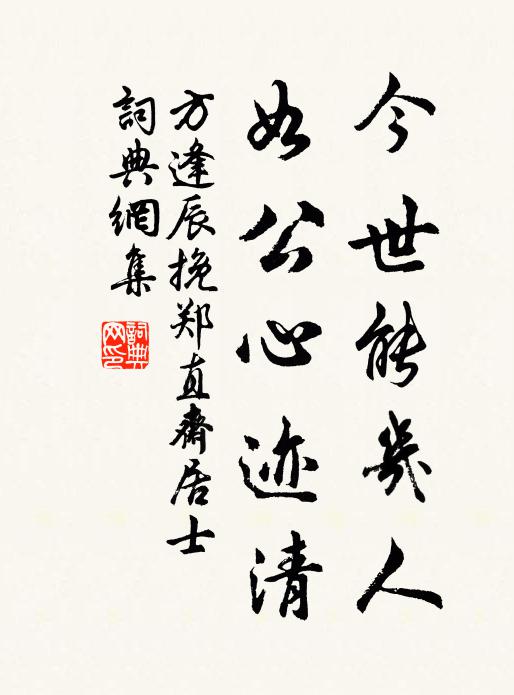 今世能幾人
如公心迹清
方逢辰挽郑直齋居士
詞典網集
詞典网印